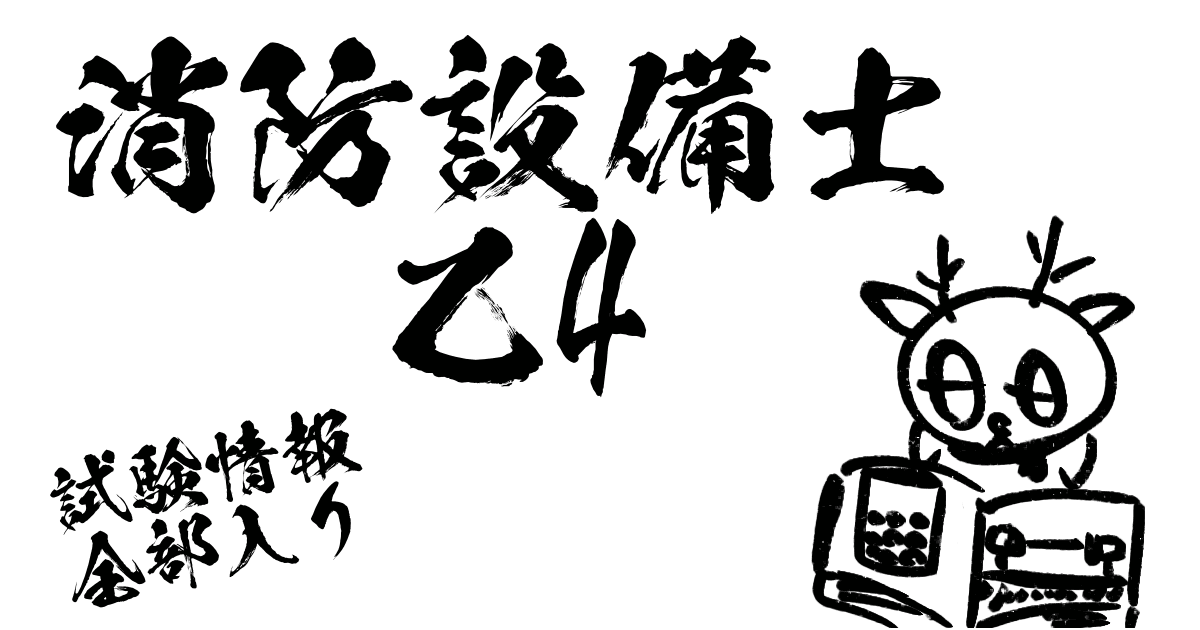 消防設備士
乙4
試験情報
全部入り